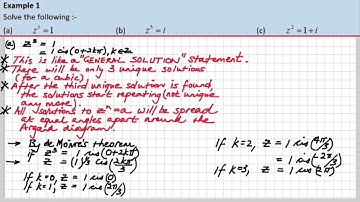 Example 1
Solve the following :-
(a) z³ = 1 (b) z⁵ = i (c) z² = 1 + i
(a) z³ = 1
= 1 cis(0+2kπ), k∈Z
* This is like a "GENERAL SOLUTION" statement.
* There will be only 3 unique solutions
(for a cubic).
* After the third unique solution is found,
the solutions start repeating (not unique
any more).
* All solutions to zⁿ=a will be spread
at equal angles apart around the
Argand diagram.
→ By de Moivre's theorem
If z³ = 1 cis(0+2kπ)
→ z = (1)^⅓ cis(2kπ/3)
If k=0, z = 1 cis(0)
If k=1, z = 1 cis(2π/3)
If k=2, z = 1 cis(4π/3)
= 1 cis(-2π/3)
If k=3, z = 1 cis(2π)